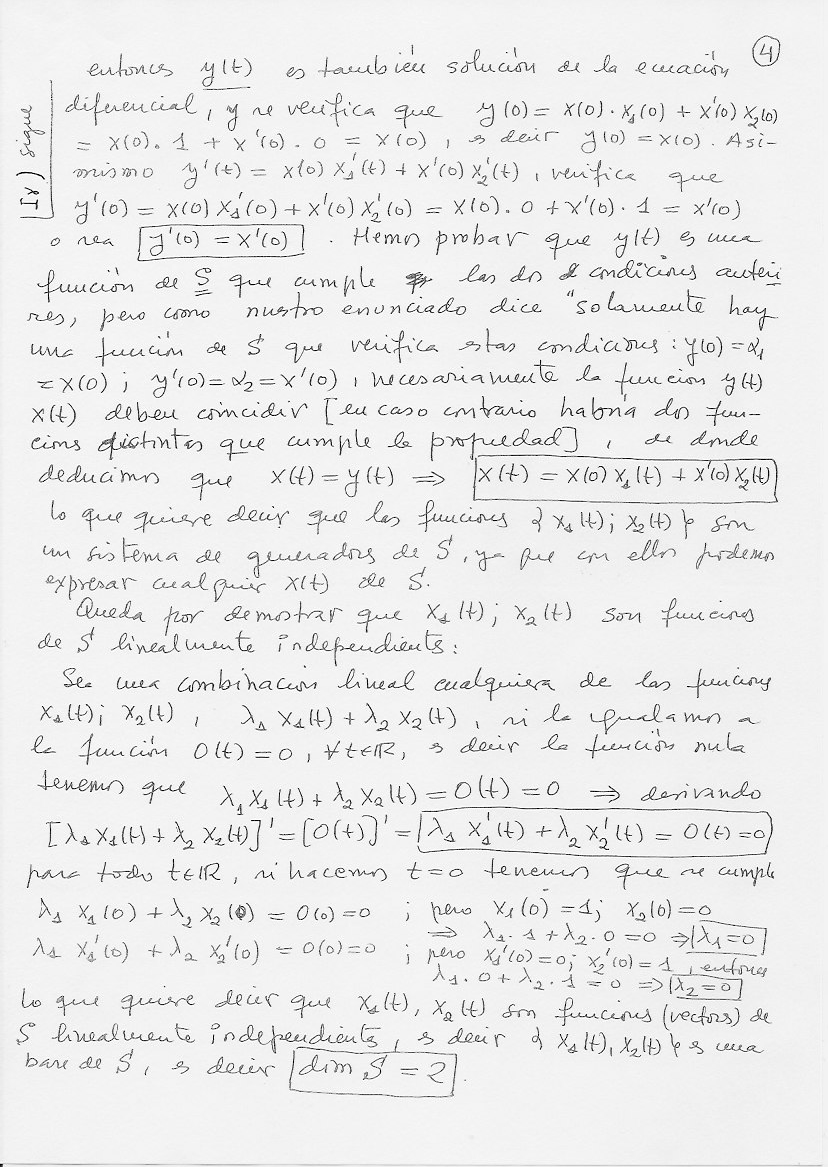 4
entonces y(t) es también solución de la ecuación
IV) sigue
diferencial, y se verifica que y(0) = x(0) · x₁(0) + x'(0) x₂(0)
= x(0). 1 + x'(0). 0 = x(0), es decir y(0) = x(0). Asi-
mismo y'(t) = x(0) x₁'(t) + x'(0) x₂'(t), verifica que
y'(0) = x(0) x₁'(0) + x'(0) x₂'(0) = x(0). 0 + x'(0). 1 = x'(0)
o sea y'(0) = x'(0). Hemos probar que y(t) es una
función de S que cumple las dos condiciones anterio
res, pero como nuestro enunciado dice "solamente hay
una función de S que verifica estas condiciones: y(0) = α₁
= x(0); y'(0) = α₂ = x'(0), necesariamente la función y(t)
x(t) deben coincidir [en caso contrario habría dos fun-
ciones distintas que cumple la propiedad], de donde
deducimos que x(t) = y(t) ⇒ x(t) = x(0) x₁(t) + x'(0) x₂(t)
lo que quiere decir que las funciones {x₁(t); x₂(t)} son
un sistema de generadores de S, ya que con ellos podemos
expresar cualquier x(t) de S.
Queda por demostrar que x₁(t); x₂(t) son funciones
de S linealmente independientes:
Sea una combinación lineal cualquiera de las funciones
x₁(t); x₂(t), λ₁ x₁(t) + λ₂ x₂(t), si la igualamos a
la función O(t) = 0, ∀t∈ℝ, es decir la función nula
tenemos que λ₁ x₁(t) + λ₂ x₂(t) = O(t) = 0 ⇒ derivando
[λ₁ x₁(t) + λ₂ x₂(t)]' = [O(t)]' = λ₁ x₁'(t) + λ₂ x₂'(t) = O(t) = 0
para todo t∈ℝ, si hacemos t = 0 tenemos que se cumple
λ₁ x₁(0) + λ₂ x₂(0) = O(0) = 0 ; pero x₁(0) = 1; x₂(0) = 0
⇒ λ₁. 1 + λ₂. 0 = 0 ⇒ λ₁ = 0
λ₁ x₁'(0) + λ₂ x₂'(0) = O(0) = 0 ; pero x₁'(0) = 0; x₂'(0) = 1, entonces
λ₁. 0 + λ₂. 1 = 0 ⇒ λ₂ = 0
lo que quiere decir que x₁(t), x₂(t) son funciones (vectores) de
S linealmente independientes, es decir {x₁(t), x₂(t)} es una
base de S, es decir dim S = 2.